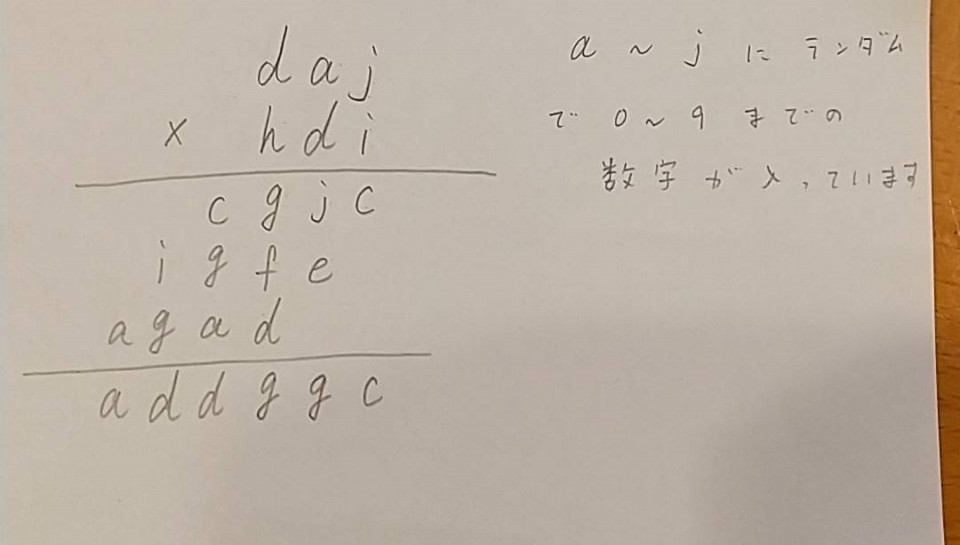 d a j
× h d i
c g j c
i g f e
a g a d
a d d g g c
a ~ j に ランダム
で 0~9 までの
数字が入っています